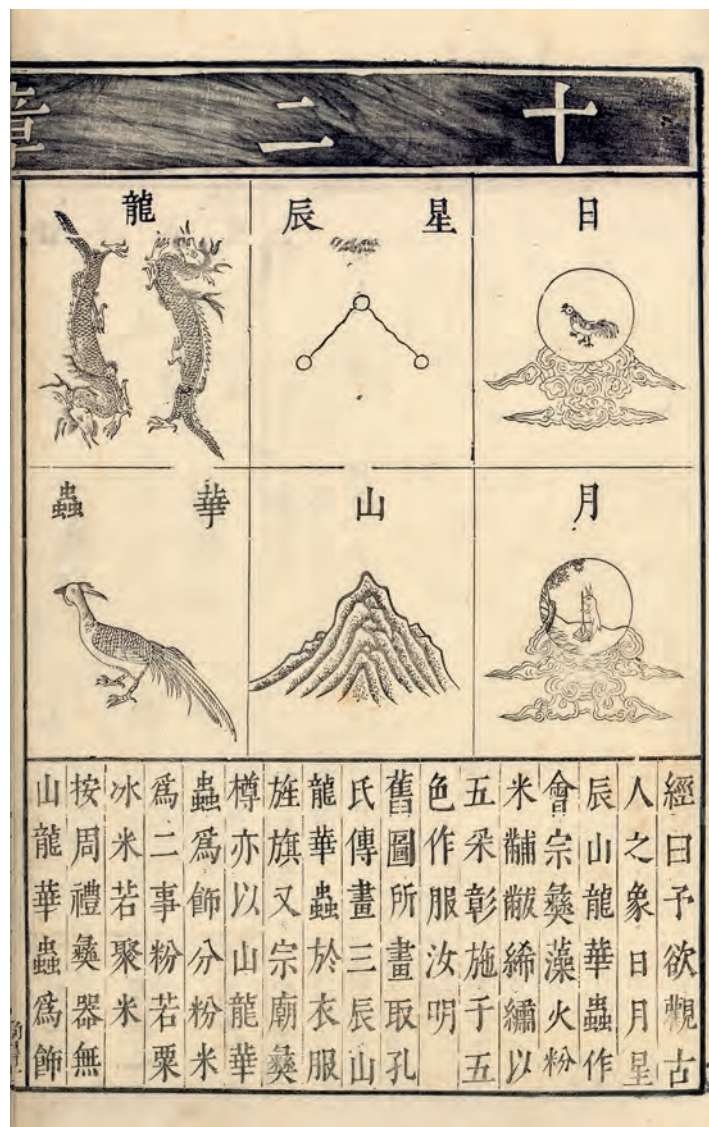 十二章
日
月
星辰
山
龍
華蟲
經曰予欲觀古
人之象日月星
辰山龍華蟲作
會宗彝藻火粉
米黼黻絺繡以
五采彰施于五
色作服汝明
舊圖所畫取孔
氏傳畫三辰山
龍華蟲於衣服
旌旗又宗廟彝
樽亦以山龍華
蟲爲飾分粉米
爲二事粉若粟
冰米若聚米
按周禮彝器無
山龍華蟲爲飾